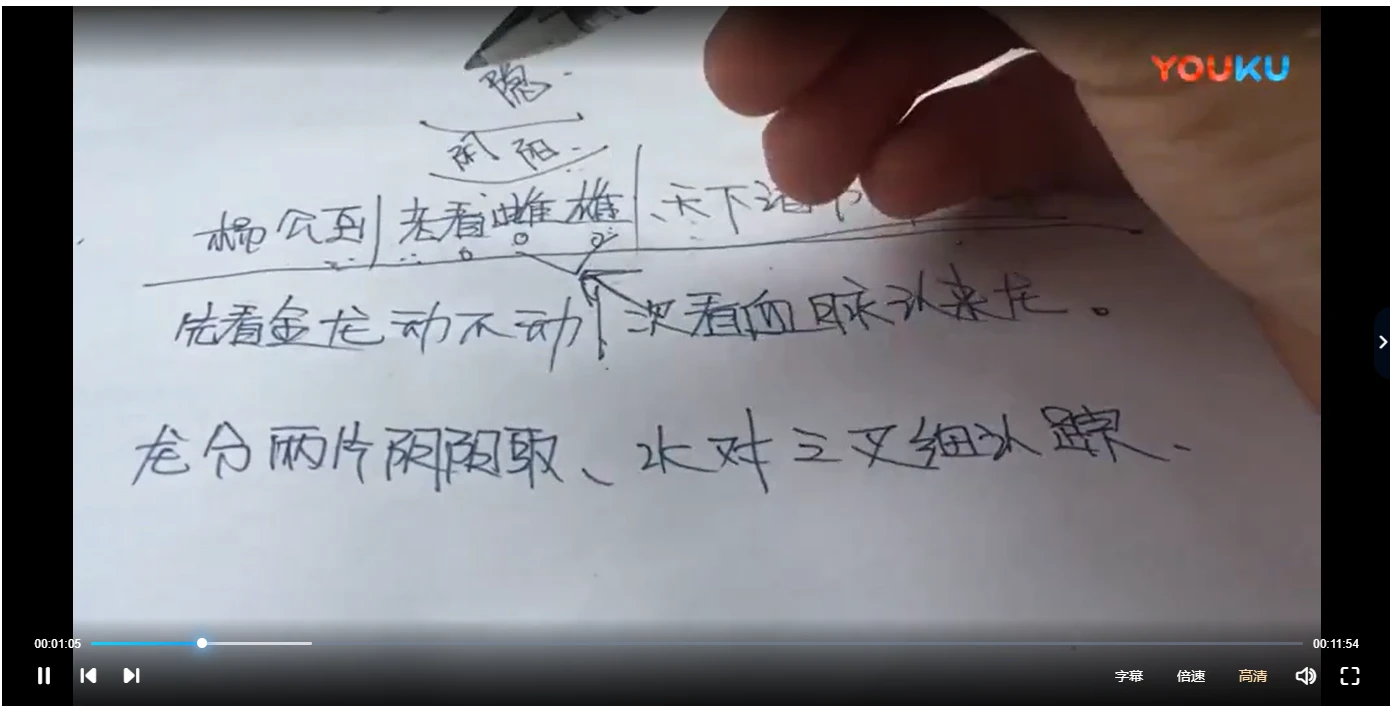 YOUKU
隐
阴阳
杨公 老看雌雄、天下
先看金龙动不动 次看血脉认来龙。
龙分两片阴阳取、水对三叉细认踪、
00:01:05 00:11:54
字幕 倍速 高清